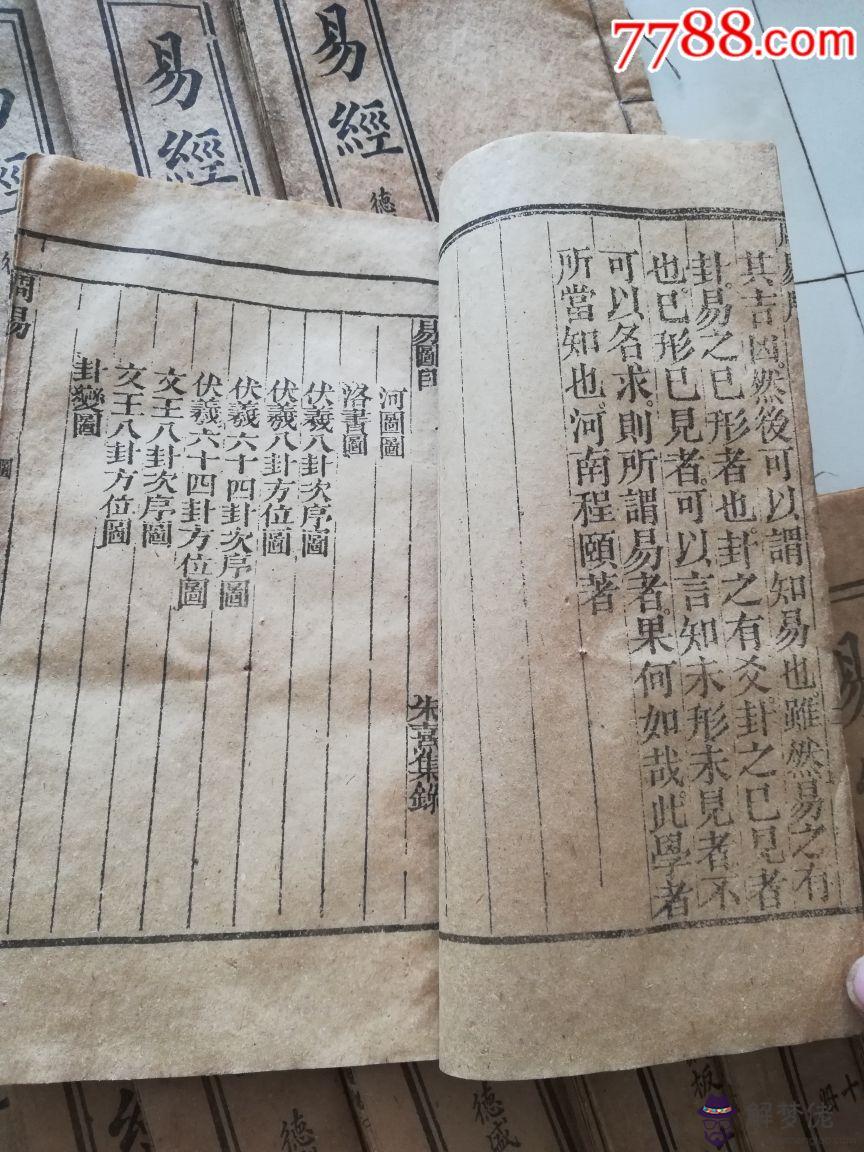 7788.com
易經
易經
易經
德
其吉凶。然後可以謂知易也。雖然易之有
卦。易之已形者也。卦之有爻。卦之已見者
也。已形已見者。可以言知。未形未見者。不
可以名求。則所謂易者。果何如哉。此學者
所當知也。河南程頤著
易圖目
朱熹集錄
河圖圖
洛書圖
伏羲八卦次序圖
伏羲八卦方位圖
伏羲六十四卦次序圖
伏羲六十四卦方位圖
文王八卦次序圖
文王八卦方位圖
卦變圖
周易
圖
易
德
德威
板
十册
解梦佬